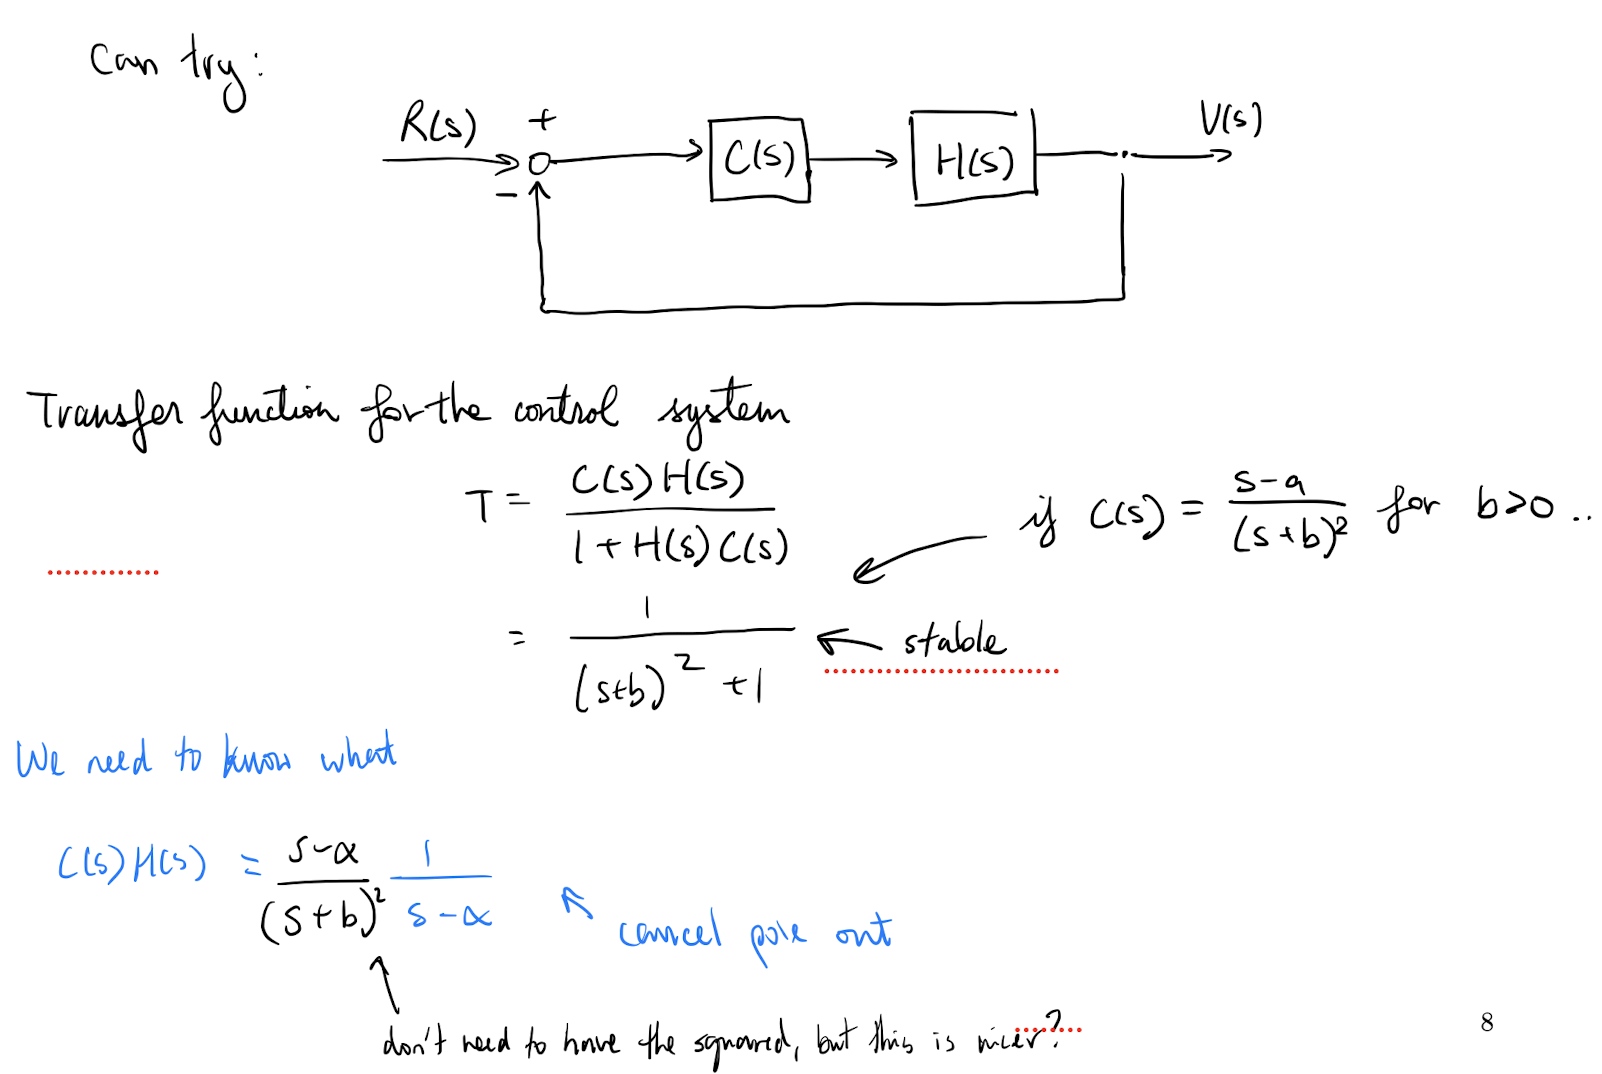 Can try:
R(s) + C(s) H(s) V(s)
-
Transfer function for the control system
T = C(s) H(s) / 1 + H(s) C(s)
if C(s) = s-a / (s+b)² for b>0 ..
= 1 / (s+b)² + 1
stable
We need to know what
C(s) H(s) = s-α / (s+b)² 1 / s-α
cancel pole out
don't need to have the squared, but this is nicer?
8